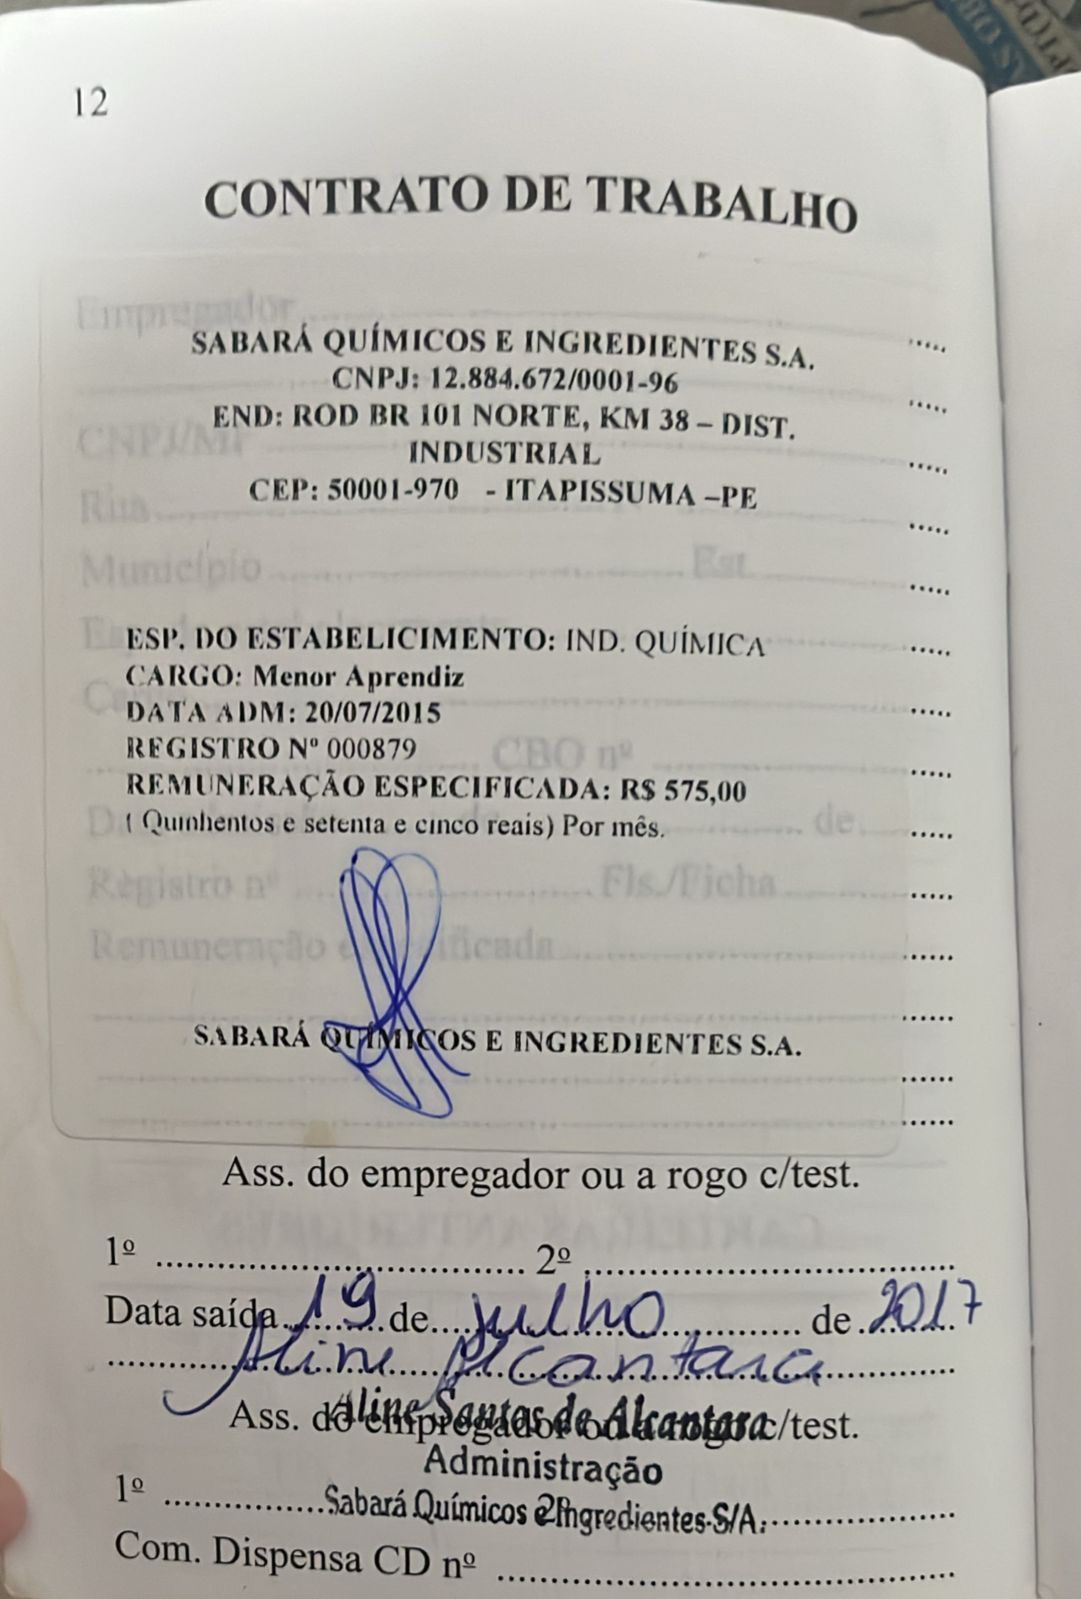 12
CONTRATO DE TRABALHO
Empregador
SABARÁ QUÍMICOS E INGREDIENTES S.A.
CNPJ: 12.884.672/0001-96
END: ROD BR 101 NORTE, KM 38 – DIST.
CNPJ/MF
INDUSTRIAL
CEP: 50001-970 - ITAPISSUMA –PE
Rua
Município Est
ESP. DO ESTABELICIMENTO: IND. QUÍMICA
CARGO: Menor Aprendiz
DATA ADM: 20/07/2015
REGISTRO Nº 000879
CBO nº
REMUNERAÇÃO ESPECIFICADA: R$ 575,00
( Quinhentos e setenta e cinco reais) Por mês.
de
Registro nº Fls./Ficha
Remuneração
SABARÁ QUÍMICOS E INGREDIENTES S.A.
Ass. do empregador ou a rogo c/test.
1º ........ 2º ........
Data saída 19 de julho de 2017
Aline Alcantara
Aline Santos de Alcantara
Ass. do empregador ou a rogo c/test.
Administração
1º ........ 2º ........
Sabará Químicos e Ingredientes S/A.
Com. Dispensa CD nº ........